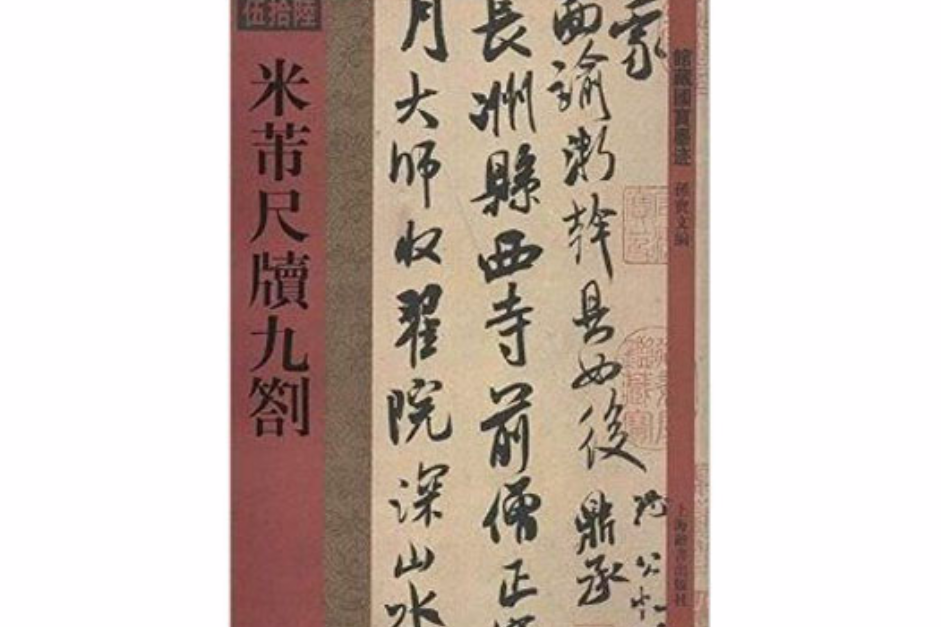 伍拾陸
米芾尺牘九劄
館藏國寶墨迹
孫寶文編
上海辭書出版社
蒙
面諭浙幹具如後
鼎承
長洲縣西寺前僧正
月大師收翟院深山水